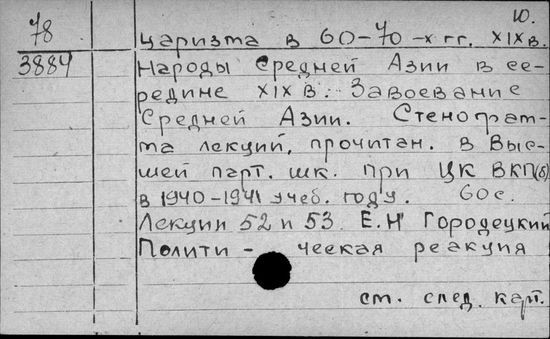 10.
78 царизма в 60-70-х гг. XIX в.
3884 Народы Средней Азии в се-
редине XIX в. Завоевание
Средней Азии. Стенограм-
ма лекций, прочитан. в Выс-
шей парт. шк. при ЦК ВКП(б)
в 1940-1941 учеб. году. 60 с.
Лекции 52 и 53. Е.Н Городецкий
Полити - ческая реакция
см. след. карт.